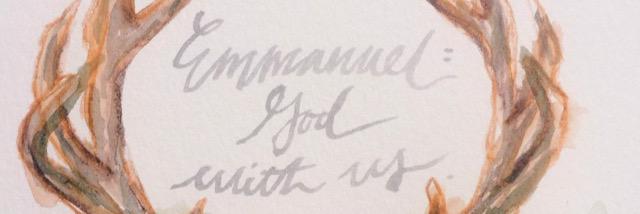 Emmanuel:
God
with us.